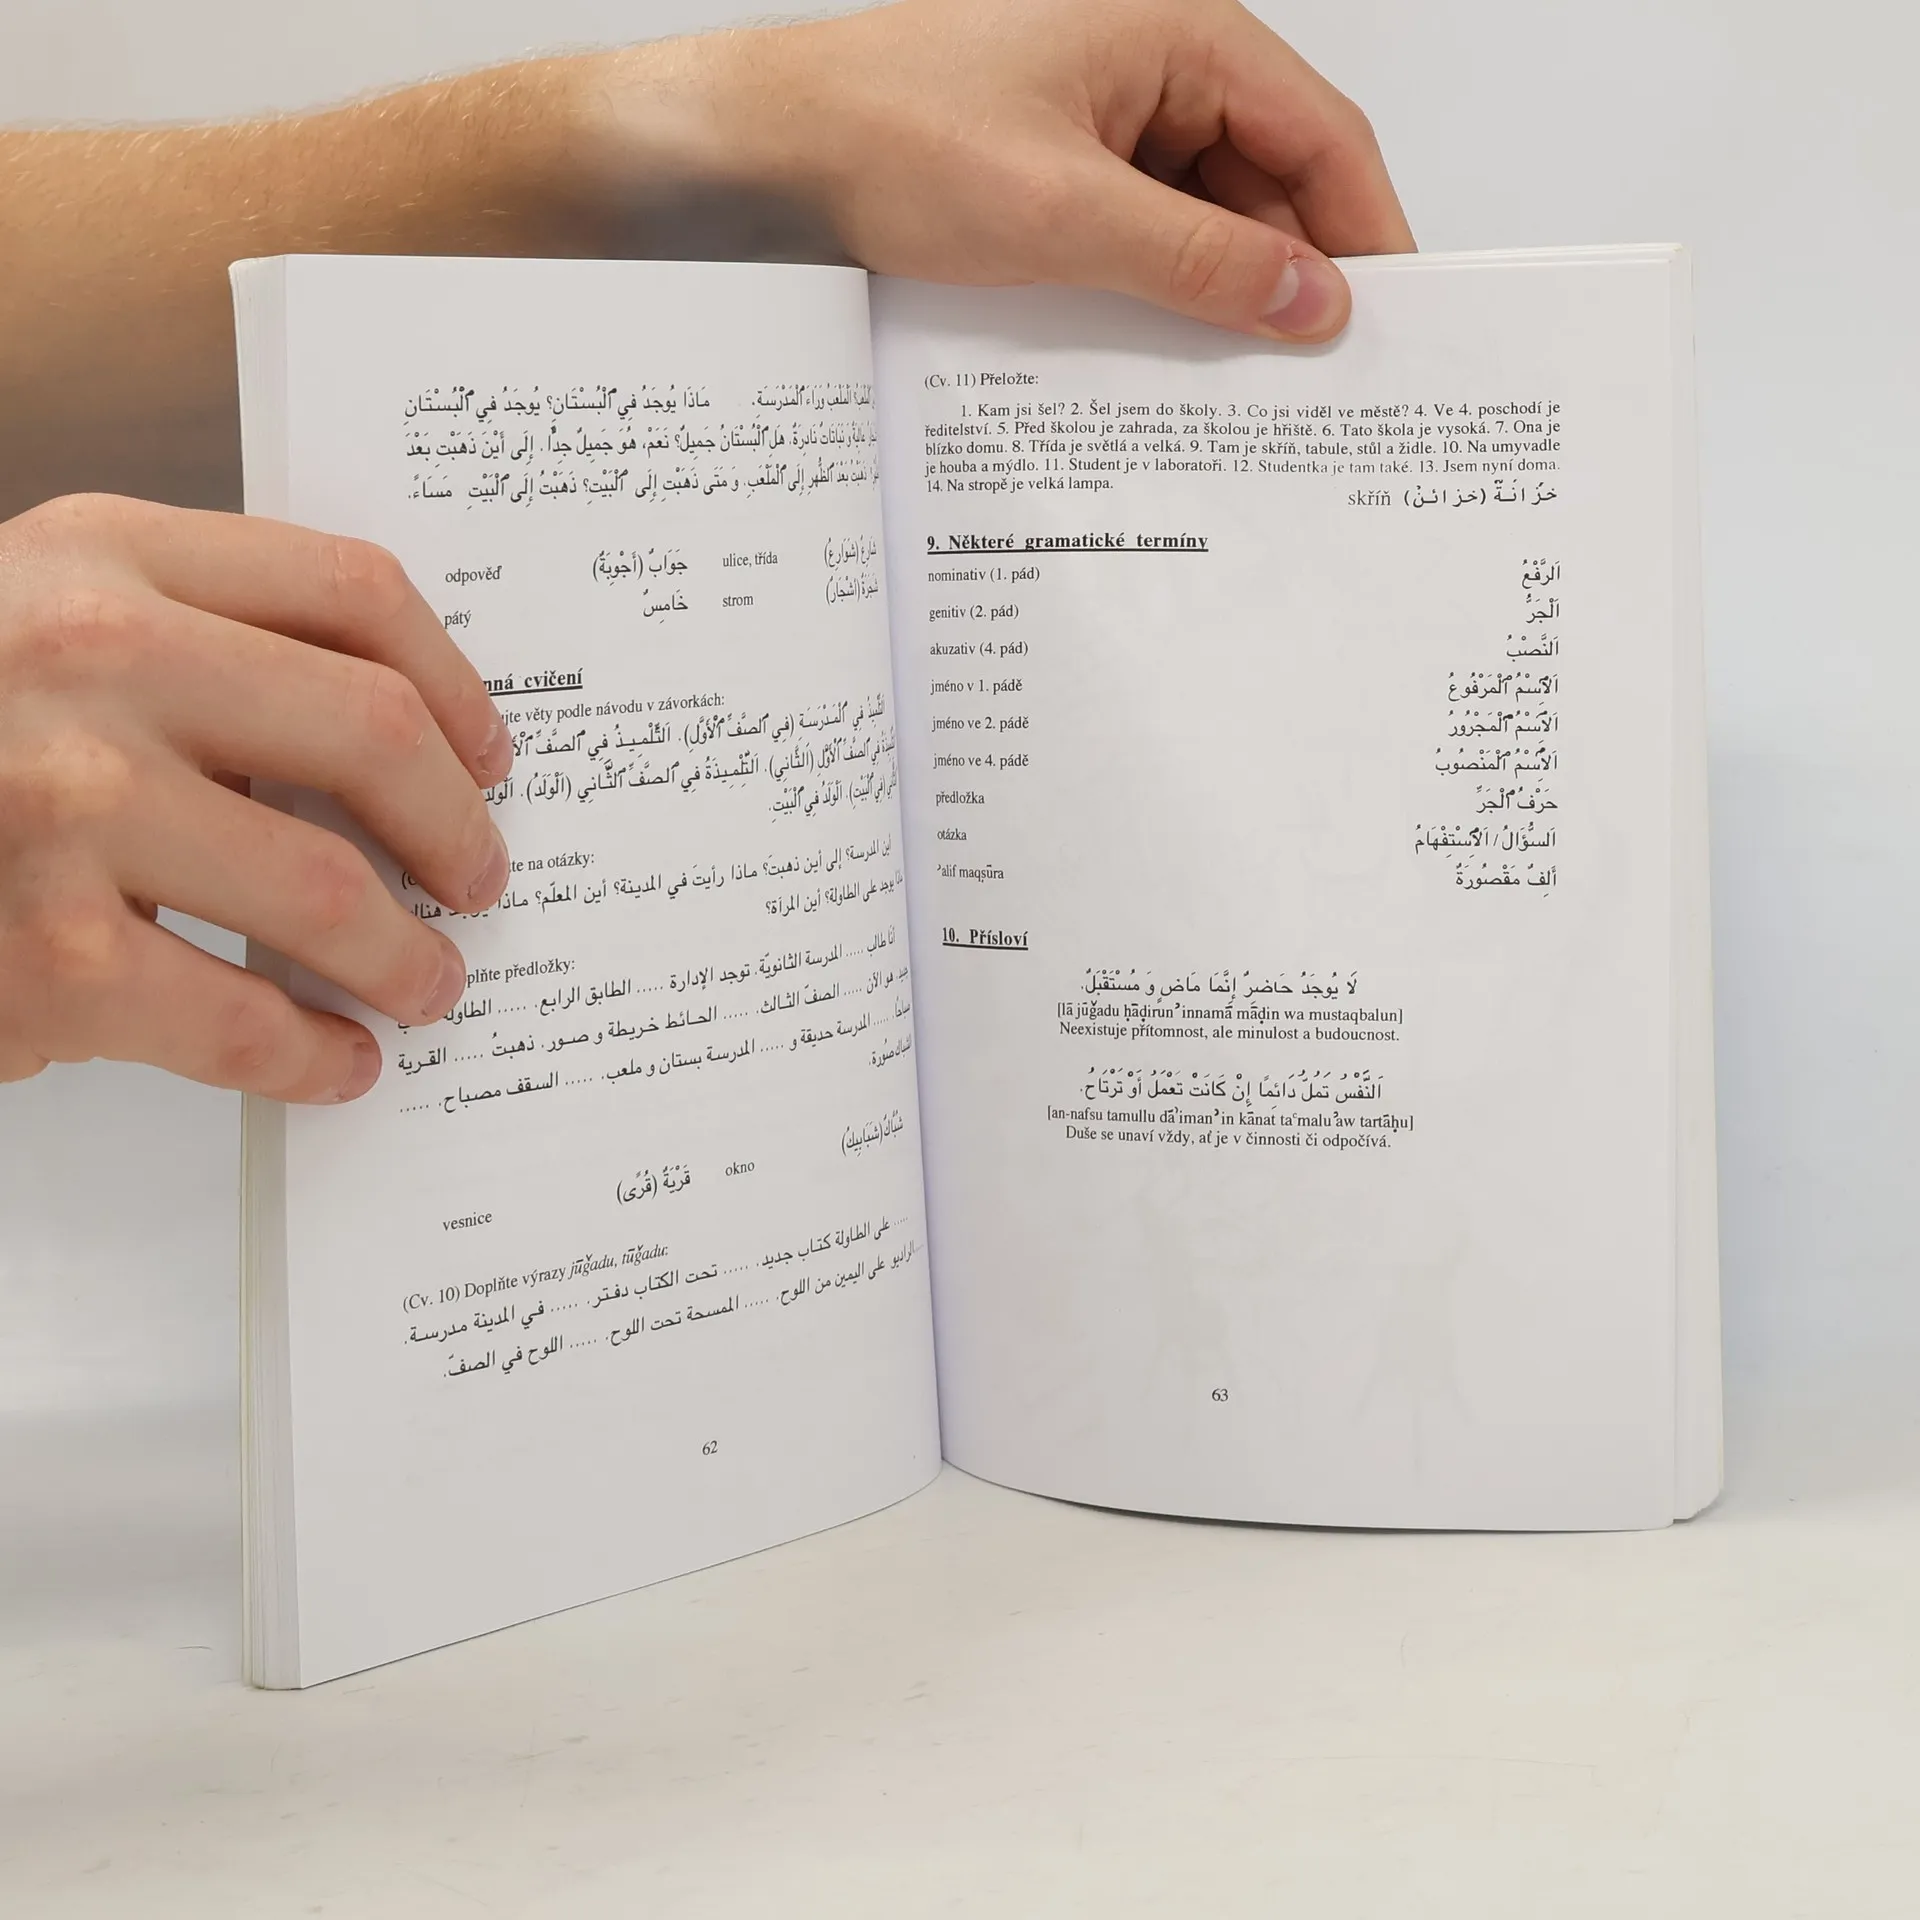 مَاذَا يُوجَدُ فِي ٱلْبُسْتَانِ؟ يُوجَدُ فِي ٱلْبُسْتَانِ
هَلِ ٱلْبُسْتَانُ جَمِيلٌ؟ نَعَمْ، هُوَ جَمِيلٌ جِدًّا. إِلَى أَيْنَ ذَهَبْتِ بَعْدَ
ذَهَبْتُ بَعْدَ ٱلظُّهْرِ إِلَى ٱلْمَلْعَبِ. وَ مَتَى ذَهَبْتِ إِلَى ٱلْبَيْتِ؟ ذَهَبْتُ إِلَى ٱلْبَيْتِ مَسَاءً.
odpověď جَوَابٌ (أَجْوِبَةٌ) ulice, třída شَارِعٌ (شَوَارِعُ)
pátý خَامِسٌ strom شَجَرَةٌ (أَشْجَارٌ)
cvičení
věty podle návodu v závorkách:
فِي ٱلْمَدْرَسَةِ (فِي ٱلصَّفِّ ٱلْأَوَّلِ). اَلتِّلْمِيذُ فِي ٱلصَّفِّ
فِي ٱلصَّفِّ ٱلْأَوَّلِ (اَلثَّانِي). اَلتِّلْمِيذَةُ فِي ٱلصَّفِّ ٱلثَّانِي (اَلْوَلَدُ).
(فِي ٱلْبَيْتِ). اَلْوَلَدُ فِي ٱلْبَيْتِ.
na otázky:
أين المدرسة؟ إلى أين ذهبتَ؟ ماذا رأيتَ في المدينة؟ أين المعلّم؟
يوجد على الطاولة؟ أين المرأة؟
předložky:
أنا طالب ..... المدرسة الثانويّة. توجد الإدارة ..... الطابق الرابع. .....
هو الآن ..... الصفّ الثالث. ..... الحائط خريطة و صور. ذهبتُ ..... القرية
..... المدرسة حديقة و ..... المدرسة بستان و ملعب. ..... السقف مصباح. .....
الشباك صورة.
شُبَّاكٌ (شَبَابِيكُ)
vesnice قَرْيَةٌ (قُرًى) okno
(Cv. 10) Doplňte výrazy jūǧadu, tūǧadu:
..... على الطاولة كتاب جديد. ..... تحت الكتاب دفتر. ..... في المدينة مدرسة.
..... الراديو على اليمين من اللوح. ..... الممسحة تحت اللوح. ..... اللوح في الصفّ.
62
(Cv. 11) Přeložte:
1. Kam jsi šel? 2. Šel jsem do školy. 3. Co jsi viděl ve městě? 4. Ve 4. poschodí je
ředitelství. 5. Před školou je zahrada, za školou je hřiště. 6. Tato škola je vysoká. 7. Ona je
blízko domu. 8. Třída je světlá a velká. 9. Tam je skříň, tabule, stůl a židle. 10. Na umyvadle
je houba a mýdlo. 11. Student je v laboratoři. 12. Studentka je tam také. 13. Jsem nyní doma.
14. Na stropě je velká lampa.
skříň خِزَانَةٌ (خزائنُ)
9. Některé gramatické termíny
nominativ (1. pád) اَلرَّفْعُ
genitiv (2. pád) اَلْجَرُّ
akuzativ (4. pád) اَلنَّصْبُ
jméno v 1. pádě اَلْاِسْمُ ٱلْمَرْفُوعُ
jméno ve 2. pádě اَلْاِسْمُ ٱلْمَجْرُورُ
jméno ve 4. pádě اَلْاِسْمُ ٱلْمَنْصُوبُ
předložka حَرْفُ ٱلْجَرِّ
otázka اَلسُّؤَالُ / اَلْاِسْتِفْهَامُ
ʾalif maqṣūra أَلِفٌ مَقْصُورَةٌ
10. Přísloví
لَا يُوجَدُ حَاضِرٌ إِنَّمَا مَاضٍ وَ مُسْتَقْبَلٌ.
[lā jūǧadu ḥāḍirun ʾinnamā māḍin wa mustaqbalun]
Neexistuje přítomnost, ale minulost a budoucnost.
اَلنَّفْسُ تَمَلُّ دَائِمًا إِنْ كَانَتْ تَعْمَلُ أَوْ تَرْتَاحُ.
[an-nafsu tamullu dāʾiman ʾin kānat taʿmalu ʾaw tartāḥu]
Duše se unaví vždy, ať je v činnosti či odpočívá.
63